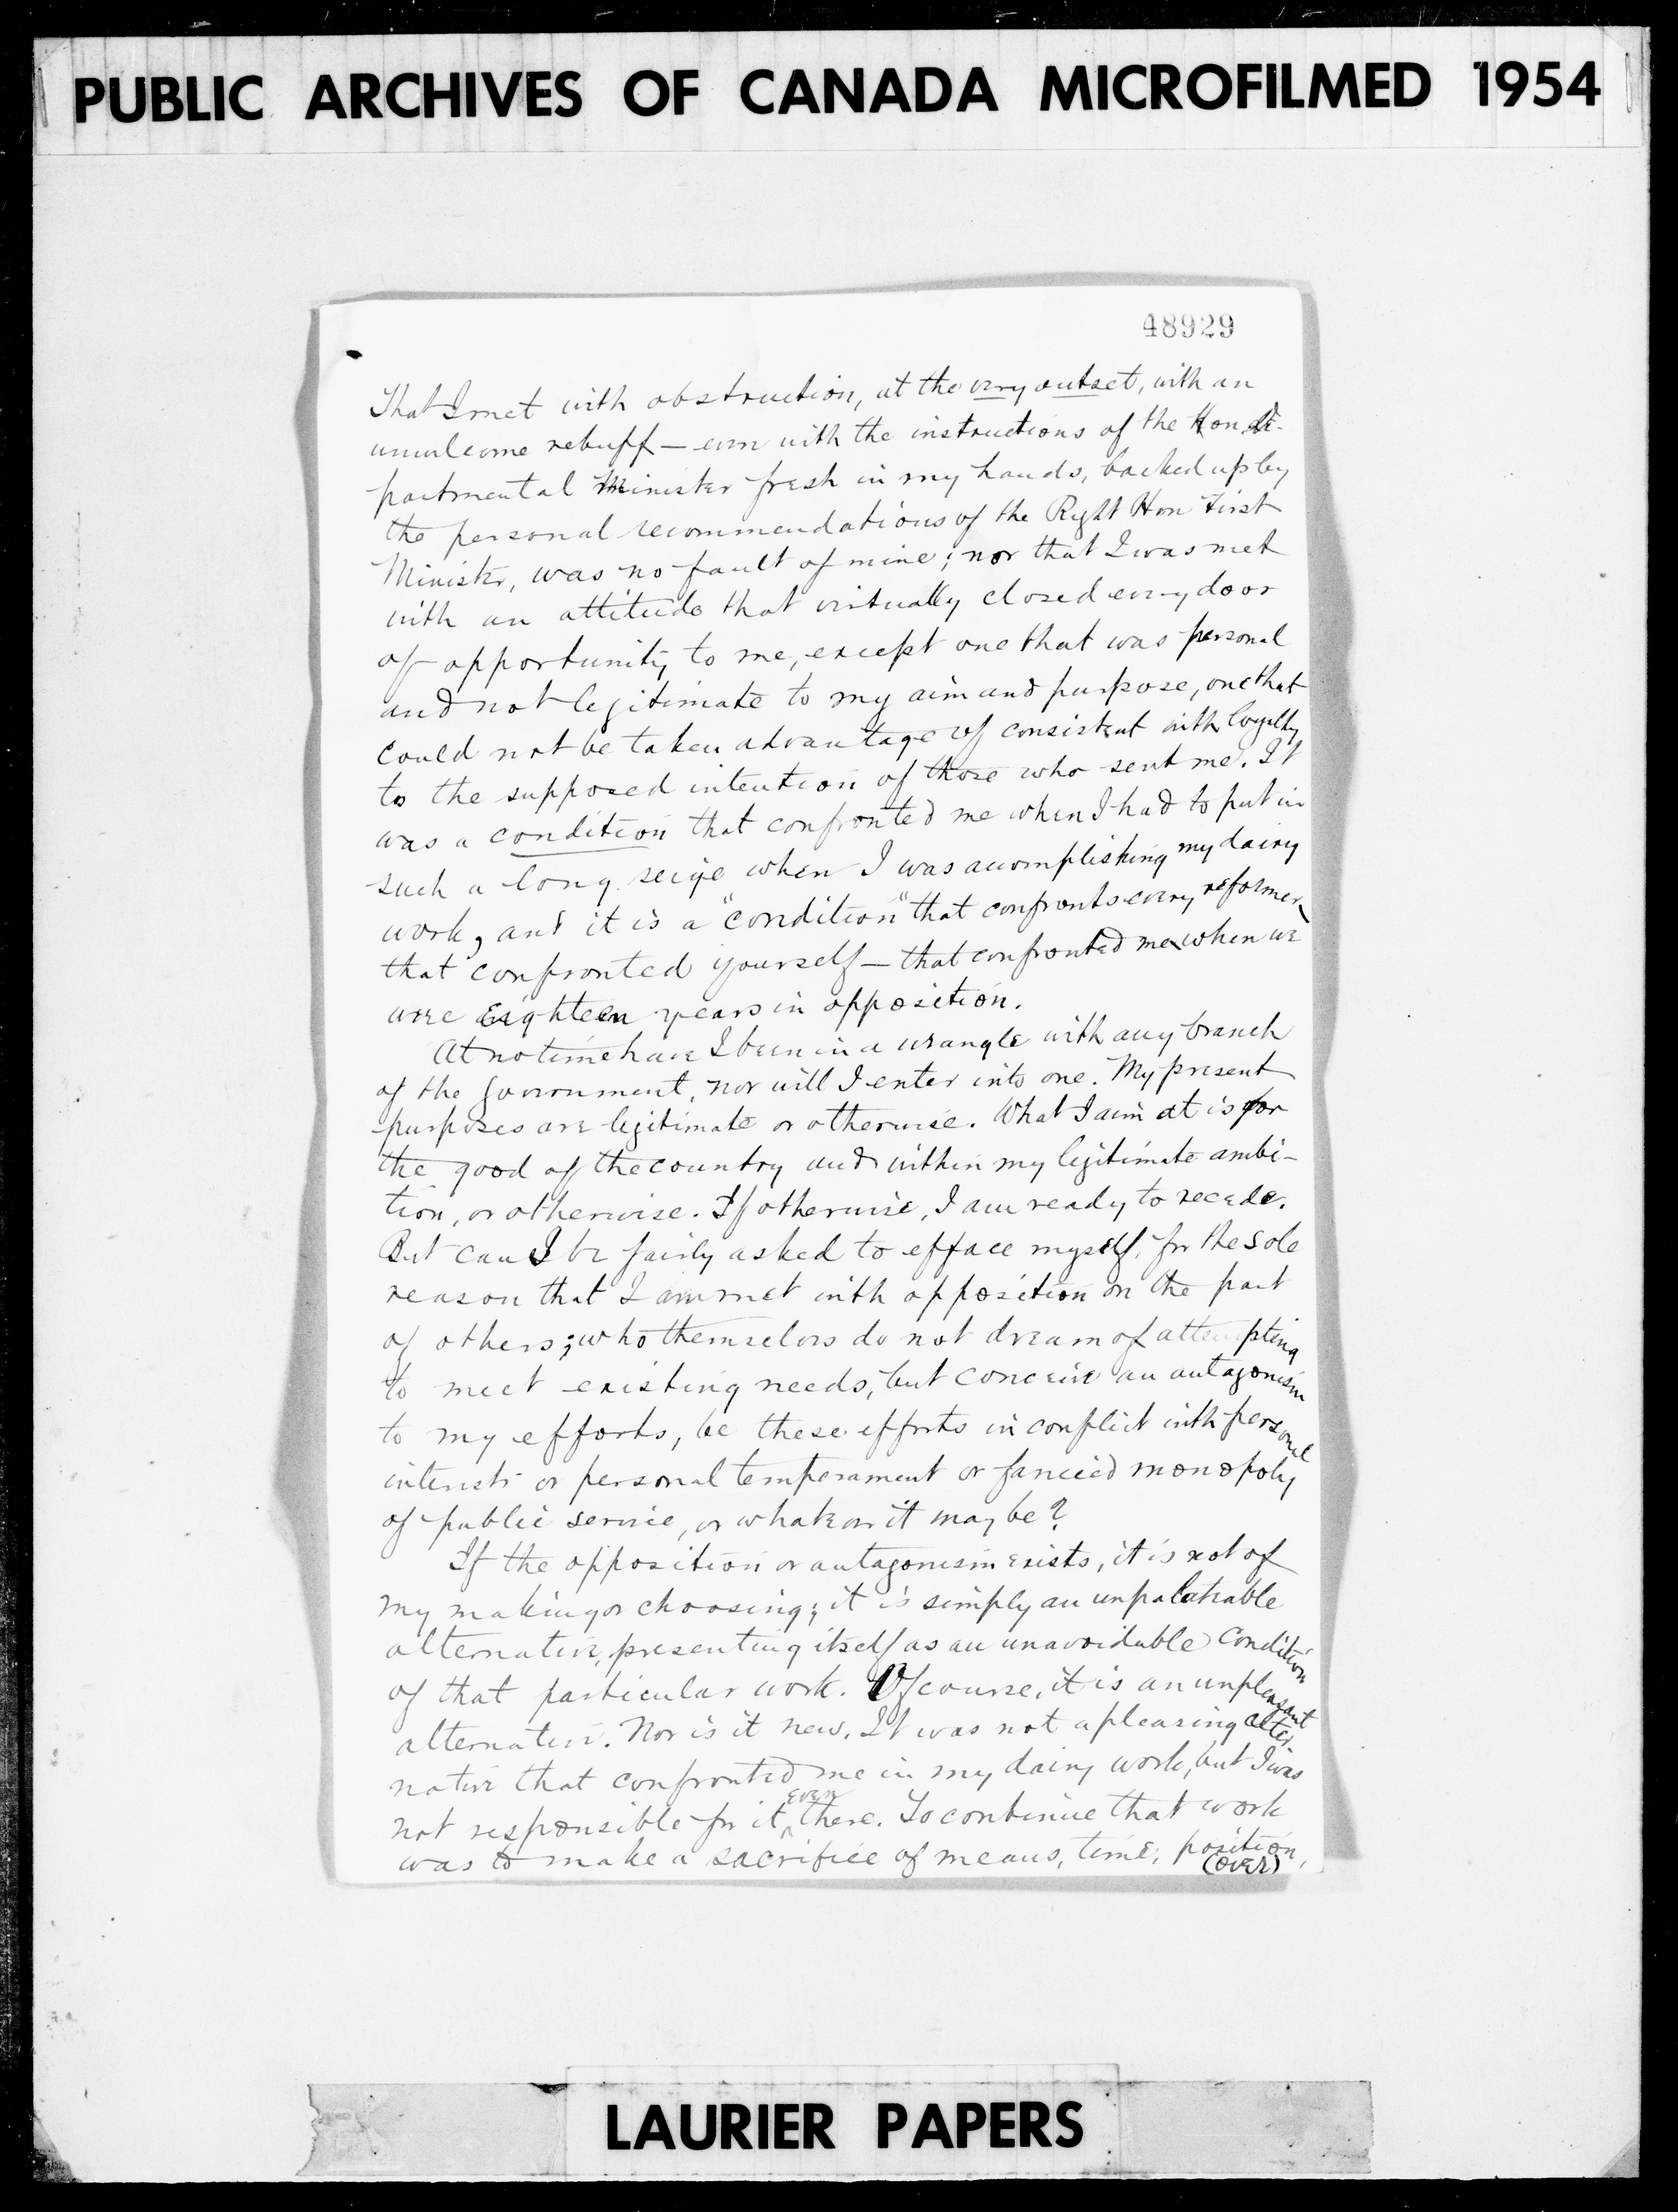 PUBLIC ARCHIVES OF CANADA MICROFILMED 1954
48929
That I met with obstruction, at the very outset, with an
unwelcome rebuff — even with the instructions of the Hon. De-
partmental Minister fresh in my hands, backed up by
the personal recommendations of the Right Hon First
Minister, was no fault of mine; nor that I was met
with an attitude that virtually closed every door
of opportunity to me, except one that was personal
and not legitimate to my aim and purpose, one that
could not be taken advantage of consistent with loyalty
to the supposed intention of those who sent me. It
was a condition that confronted me when I had to put in
such a long seige when I was acomplishing my dairy
work, and it is a "condition" that confronts every reformer,
that confronted yourself — that confronted me when we
were Eighteen years in opposition.
At no time have I been in a wrangle with any branch
of the Government, nor will I enter into one. My present
purposes are legitimate or otherwise. What I aim at is for
the good of the country and within my legitimate ambi-
tion, or otherwise. If otherwise, I am ready to recede.
But can I be fairly asked to efface myself, for the sole
reason that I am met with opposition on the part
of others; who themselves do not dream of attempting
to meet existing needs, but conceive an antagonism
to my efforts, be these efforts in conflict with personal
interests or personal temperament or fancied monopoly
of public service, or whatever it may be?
If the opposition or antagonism exists, it is not of
my making or choosing; it is simply an unpalatable
alternative, presenting itself as an unavoidable condition
of that particular work. Of course, it is an unpleasant
alternative. Nor is it new. It was not a pleasing alter
native that confronted me in my dairy work, but I was
not responsible for it even there. To continue that work
was to make a sacrifice of means, time, position,
(over)
LAURIER PAPERS